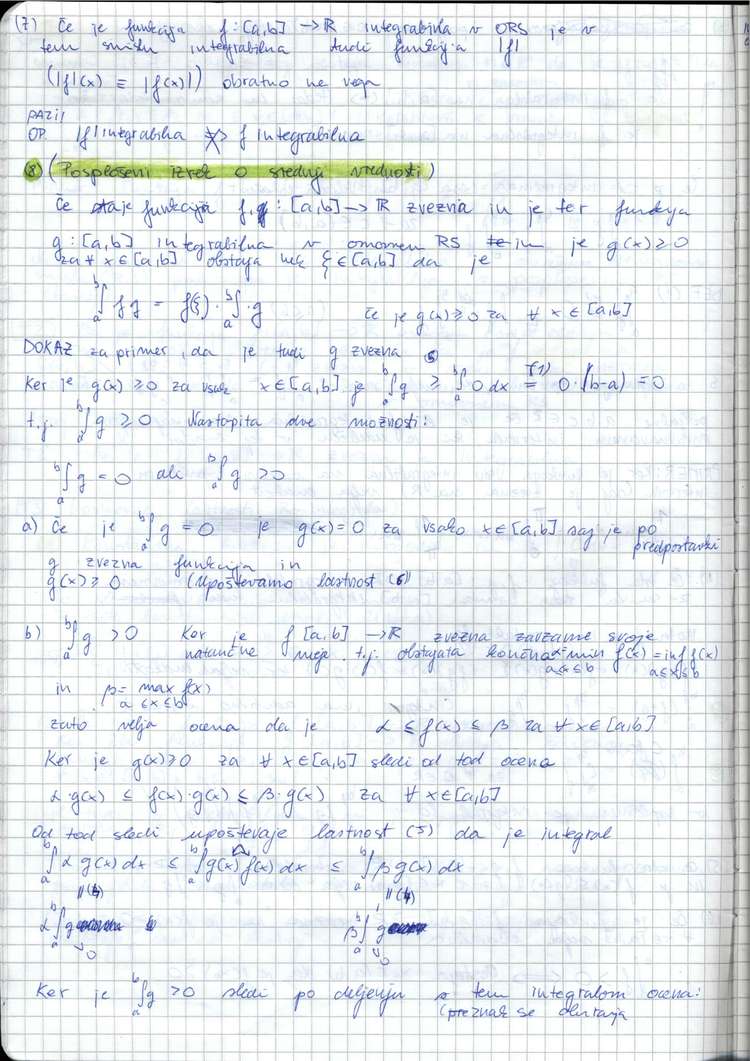 (7) Če je funkcija f: [a,b] → ℝ integrabilna v ORS je v
tem smislu integrabilna tudi funkcija |f|
(|f|(x) ≡ |f(x)|) obratno ne velja
PAZI!
OP. |f| integrabilna ⇏ f integrabilna
(8) (Posplošeni izrek o srednji vrednosti)
Če staje funkcija f, g : [a,b] → ℝ zvezna in je ter funkcija
g: [a,b] integrabilna v RS in je g(x) ≥ 0
za ∀ x ∈ [a,b] obstaja nek ξ ∈ [a,b] da je
ₐ∫ᵇ f g = f(ξ) · ₐ∫ᵇ g če je g(x) ≥ 0 za ∀ x ∈ [a,b]
DOKAZ za primer, da je tudi g zvezna
Ker je g(x) ≥ 0 za vsak x ∈ [a,b] je ₐ∫ᵇ g ≥ ₐ∫ᵇ 0 dx = 0·(b-a) = 0
t.j. ₐ∫ᵇ g ≥ 0 Nastopita dve možnosti:
ₐ∫ᵇ g = 0 ali ₐ∫ᵇ g > 0
a) Če je ₐ∫ᵇ g = 0 je g(x) = 0 za vsako x ∈ [a,b] saj je po
predpostavki
g zvezna funkcija in
g(x) ≥ 0 (Upoštevamo lastnost (6))
b) ₐ∫ᵇ g > 0 Ker je f [a,b] → ℝ zvezna zavzame svoje
natančne meje t.j. obstajata končna α = min f(x) = inf f(x)
a≤x≤b a≤x≤b
in β = max f(x)
a≤x≤b
zato velja ocena da je α ≤ f(x) ≤ β za ∀ x ∈ [a,b]
Ker je g(x) ≥ 0 za ∀ x ∈ [a,b] sledi od tod ocena
α·g(x) ≤ f(x)·g(x) ≤ β·g(x) za ∀ x ∈ [a,b]
Od tod sledi upoštevaje lastnost (5) da je integral
ₐ∫ᵇ α g(x) dx ≤ ₐ∫ᵇ g(x) f(x) dx ≤ ₐ∫ᵇ β g(x) dx
|| (4) || (4)
α ₐ∫ᵇ g β ₐ∫ᵇ g
0 0
Ker je ₐ∫ᵇ g > 0 sledi po deljenju s tem integralom ocena:
(preznak se ohranja